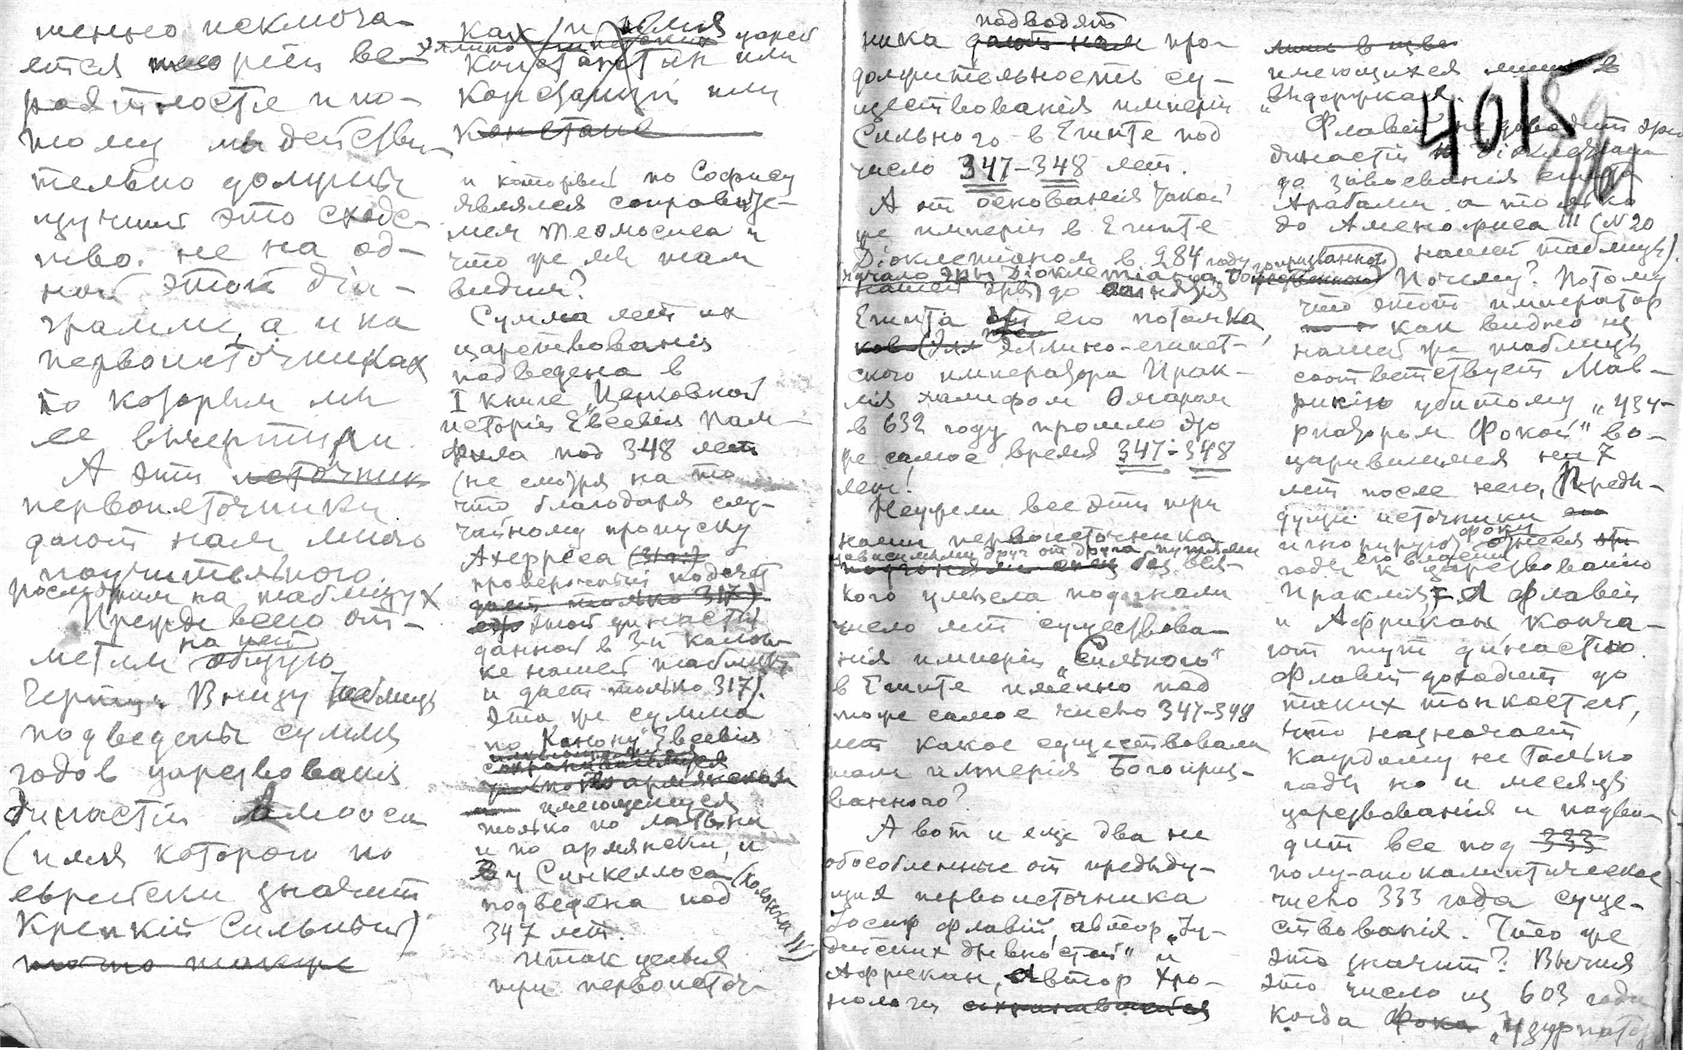 шенно исключа-
ется теоріей ве-
роятности и по-
тому мы действи-
тельно должны
изучить это сходс-
тво не на од-
ной этой діа-
грамме, а и на
первоисточниках
по которым мы
ее вычертили.
А эти источник
первоисточники
дают нам много
поучительного.
Посмотрим на таблицу X
Прежде всего от-
метим на ней
общую
черту: Внизу таблицы
подведены суммы
годов царствования
династіи Амооса
(имя которого по
еврейски значит
Крепкій Сильный)
точно также
Как и
Константин или
Констанцій или
Констанс
и который по Софису
являлся соправите-
лем Тетмосиса и
что же мы там
видим?
Сумма лет их
царствованія
подведена в
I книге „Церковной
исторіи Евсевія Пам-
фила под 348 лет
(не смотря на то
что благодаря слу-
чайному пропуску
Ахерреса
проверочный подсчет
дает только 317)
этой династіи
данной в 3й колон-
ке нашей таблицы
и дает только 317).
Эта же сумма
по Канону Евсевія
сохранившемуся
имеющемуся
только по латыни
и по армянски, и
у Синкеллоса (колонка II)
подведена под
347 лет.
Итак целых
три первоисточ-
подводят
ника дают нам про-
должительность су-
ществованія имперіи
Сильного в Египте под
число 347-348 лет.
А от основанія такой
же имперіи в Египте
Діоклетіаном в 284 году
(начало эры Діоклетіана
нашей эры) до занятія
Египта его потомка,
эллино-египет-
ского императора Ирак-
лія халифом Омаром
в 632 году прошло то
же самое время 347-348
лет!
Неужели все эти три
наши первоисточника
независимыми друг от друга путями
без вся-
кого умысла подогнали
число лет существова-
нія имперіи „Сильного"
в Египте именно под
тоже самое число 347-348
лет какое существовала
там имперія Богоприз-
ванного?
А вот и еще два не
обособленные от предыду-
щих первоисточника
Іосиф Флавій, автор „Іу-
дейских древностей" и
Африкан, автор Хро-
нологіи
имеющихся лишь в
отрывках.
4015
Флавій не доводит эту
династію
до завоеванія Египта
Арабами, а только
до Аменофиса!!! (N 20
нашей таблицы).
Почему? Потому
что этот император
как видно из
нашей же таблицы
соответствует Мав-
рикію убитому „узур-
патором Фокой" во-
царившимся на 7
лет после него. Преды-
дущіе источники
игнорируют Фоку
годы его к царствованію
Ираклія, А Флавій
и Африкан конча-
ют тут династію.
Флавій доходит до
таких тонкостей,
что назначает
каждому не только
годы но и месяцы
царствованія и подво-
дит все под 333
полу-апокалиптическое
число 333 года суще-
ствованія. Что же
это значит? Вычтя
это число из 603 года
когда Фока „Узурпатор